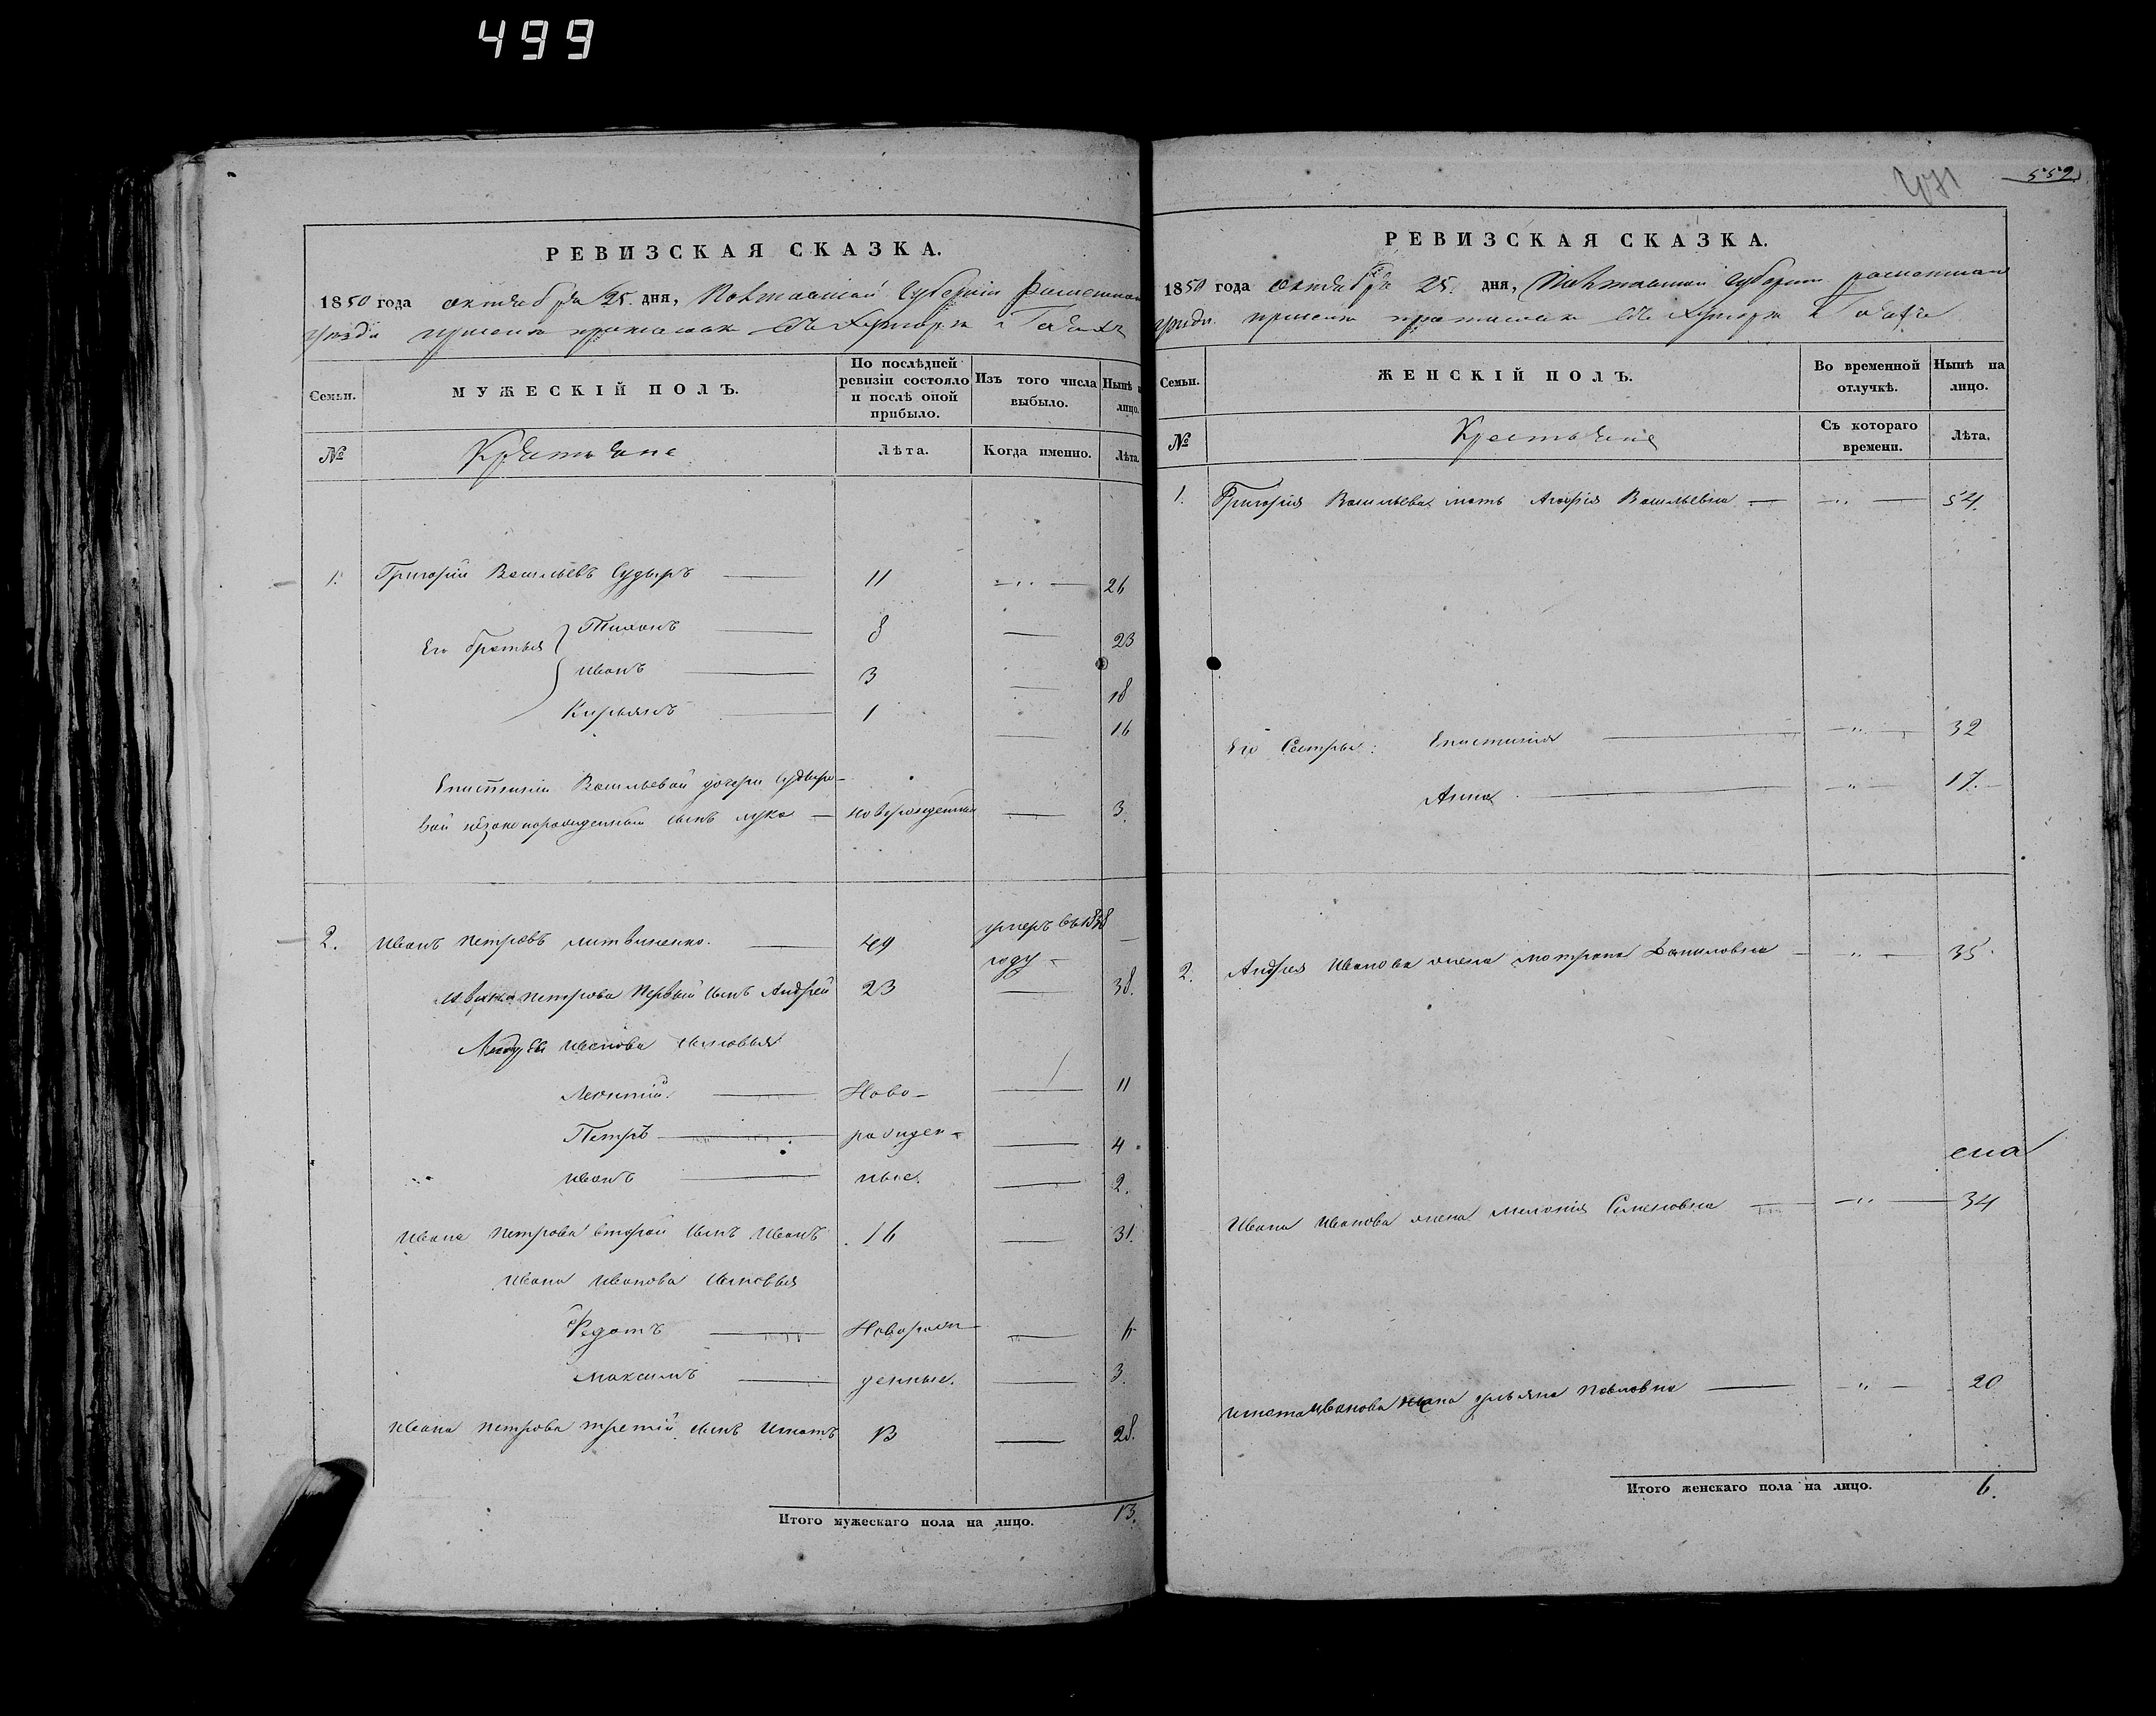 499
РЕВИЗСКАЯ СКАЗКА.
1850 года октября 25. дня, Полтавской Губернии
уезда
Семьи.
МУЖЕСКІЙ ПОЛЪ.
По послѣдней ревизіи состояло и послѣ оной прибыло.
Изъ того числа выбыло.
Нынѣ лицо.
№
Крестьяне
Лѣта.
Когда именно.
Лѣта.
1. Григорій Васильевъ Судыръ — 11 — " — 26
Его братья Тихонъ — 8 — 23
Иванъ — 3 — 18
Кирьянъ — 1 — 16
Епистиміи Васильевой дочери Судыро-
вой незаконорожденный сынъ Лука — новорожденный — 3.
2. Иванъ Петровъ Литвиненко. — 49 умеръ въ 1838
году —
Ивана Петрова первый сынъ Андрей 23 — 38.
Андрея Иванова сыновья
Леонтій. — Ново- — 11
Петръ — рожден- — 4
Иванъ — ные. — 2.
Ивана Петрова второй сынъ Иванъ 16 — 31.
Ивана Иванова сыновья
Федотъ — Новорож — 6
Максимъ — денные. — 3.
Ивана Петрова третій сынъ Игнатъ 13 — 28.
Итого мужескаго пола на лицо. 13.
559
РЕВИЗСКАЯ СКАЗКА.
1850 года октября 25. дня, Полтавской Губернии
уезда
Семьи.
ЖЕНСКІЙ ПОЛЪ.
Во временной отлучкѣ.
Нынѣ на лицо.
№
Крестьяне
Съ котораго времени.
Лѣта.
1. Григорія Васильева мать Агафія Васильевна — — " — 54.
Его Сестры: Епистимія — " — 32
Анна — " — 17.
2. Андрея Иванова жена Мотрона Даниловна — " — 35.
Ивана Иванова жена Меланія Семеновна — — " — 34
Игната Иванова жена Ульяна Павловна — — " — 20
Итого женскаго пола на лицо. 6.